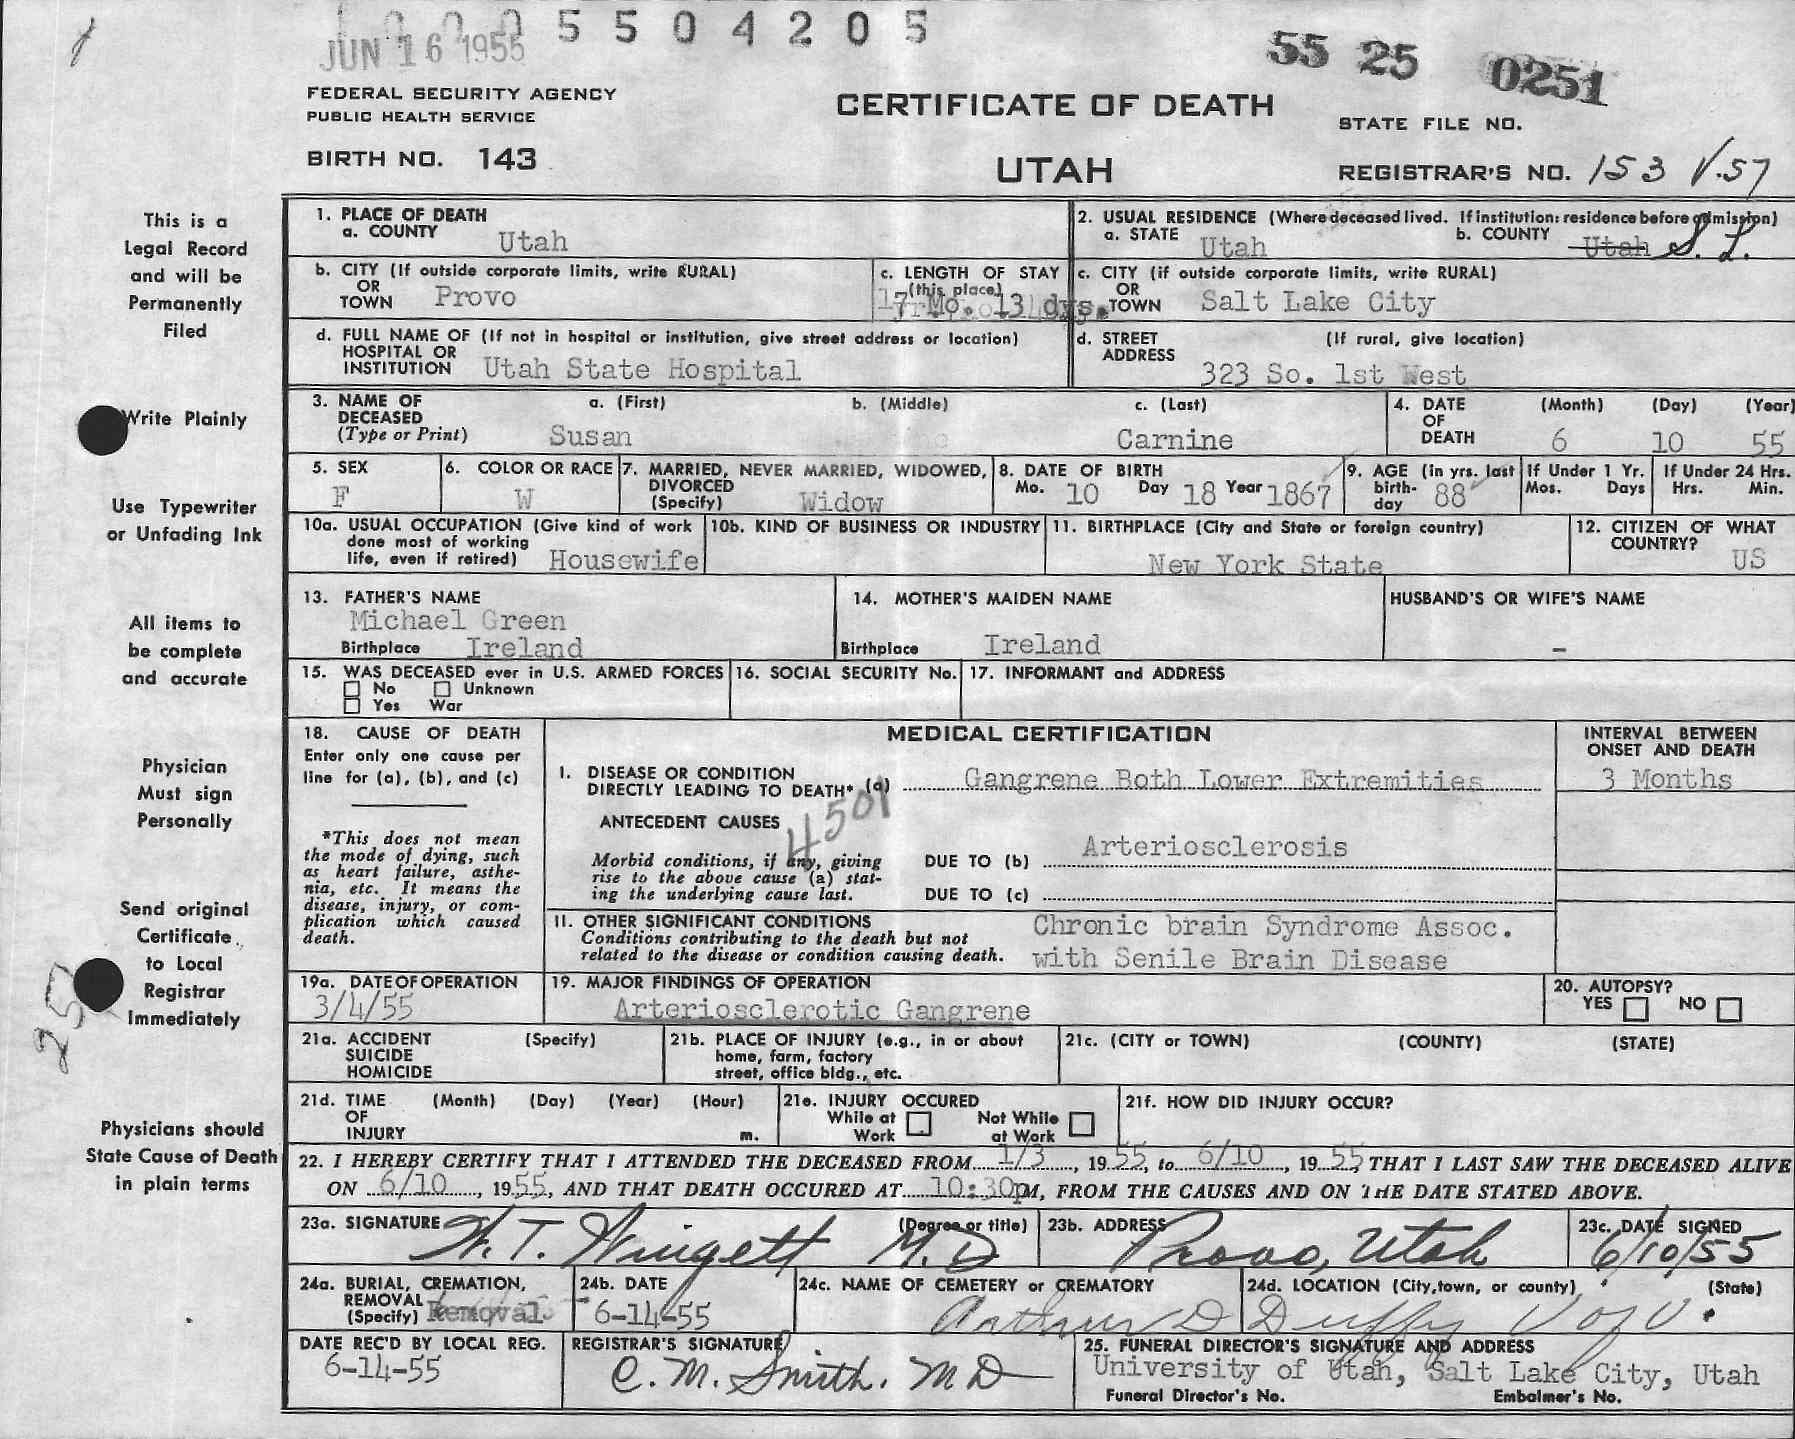 JUN 16 1955
5 5 0 4 2 0 5
55 25 0251
FEDERAL SECURITY AGENCY
PUBLIC HEALTH SERVICE
CERTIFICATE OF DEATH
STATE FILE NO.
BIRTH NO. 143
UTAH
REGISTRAR'S NO. 153 V.57
This is a
Legal Record
and will be
Permanently
Filed
Write Plainly
Use Typewriter
or Unfading Ink
All items to
be complete
and accurate
Physician
Must sign
Personally
Send original
Certificate
to Local
Registrar
Immediately
257
Physicians should
State Cause of Death
in plain terms
1. PLACE OF DEATH
a. COUNTY Utah
2. USUAL RESIDENCE (Where deceased lived. If institution: residence before admission)
a. STATE Utah b. COUNTY Utah S. L.
b. CITY (If outside corporate limits, write RURAL)
OR
TOWN Provo
c. LENGTH OF STAY
(this place)
17 Mo. 13 dys.
c. CITY (if outside corporate limits, write RURAL)
OR
TOWN Salt Lake City
d. FULL NAME OF (If not in hospital or institution, give street address or location)
HOSPITAL OR
INSTITUTION Utah State Hospital
d. STREET (If rural, give location)
ADDRESS
323 So. 1st West
3. NAME OF a. (First) b. (Middle) c. (Last)
DECEASED
(Type or Print) Susan Carnine
4. DATE (Month) (Day) (Year)
OF
DEATH 6 10 55
5. SEX
F
6. COLOR OR RACE
W
7. MARRIED, NEVER MARRIED, WIDOWED,
DIVORCED
(Specify) Widow
8. DATE OF BIRTH
Mo. 10 Day 18 Year 1867
9. AGE (in yrs. last
birth- 88
day
If Under 1 Yr.
Mos. Days
If Under 24 Hrs.
Hrs. Min.
10a. USUAL OCCUPATION (Give kind of work
done most of working
life, even if retired) Housewife
10b. KIND OF BUSINESS OR INDUSTRY
11. BIRTHPLACE (City and State or foreign country)
New York State
12. CITIZEN OF WHAT
COUNTRY?
US
13. FATHER'S NAME
Michael Green
Birthplace Ireland
14. MOTHER'S MAIDEN NAME
Birthplace Ireland
HUSBAND'S OR WIFE'S NAME
-
15. WAS DECEASED ever in U.S. ARMED FORCES
No Unknown
Yes War
16. SOCIAL SECURITY No.
17. INFORMANT and ADDRESS
18. CAUSE OF DEATH
Enter only one cause per
line for (a), (b), and (c)
*This does not mean
the mode of dying, such
as heart failure, asthe-
nia, etc. It means the
disease, injury, or com-
plication which caused
death.
MEDICAL CERTIFICATION
INTERVAL BETWEEN
ONSET AND DEATH
I. DISEASE OR CONDITION
DIRECTLY LEADING TO DEATH* (a) Gangrene Both Lower Extremities 3 Months
4501
ANTECEDENT CAUSES
Morbid conditions, if any, giving
rise to the above cause (a) stat-
ing the underlying cause last.
DUE TO (b) Arteriosclerosis
DUE TO (c)
II. OTHER SIGNIFICANT CONDITIONS
Conditions contributing to the death but not
related to the disease or condition causing death.
Chronic brain Syndrome Assoc.
with Senile Brain Disease
19a. DATE OF OPERATION
3/4/55
19. MAJOR FINDINGS OF OPERATION
Arteriosclerotic Gangrene
20. AUTOPSY?
YES NO
21a. ACCIDENT (Specify)
SUICIDE
HOMICIDE
21b. PLACE OF INJURY (e.g., in or about
home, farm, factory
street, office bldg., etc.
21c. (CITY or TOWN) (COUNTY) (STATE)
21d. TIME (Month) (Day) (Year) (Hour)
OF
INJURY m.
21e. INJURY OCCURED
While at Not While
Work at Work
21f. HOW DID INJURY OCCUR?
22. I HEREBY CERTIFY THAT I ATTENDED THE DECEASED FROM 1/3, 1955, to 6/10, 1955, THAT I LAST SAW THE DECEASED ALIVE
ON 6/10, 1955, AND THAT DEATH OCCURED AT 10:30pM, FROM THE CAUSES AND ON THE DATE STATED ABOVE.
23a. SIGNATURE (Degree or title)
W. T. Wingett M.D
23b. ADDRESS
Provo, Utah
23c. DATE SIGNED
6/10/55
24a. BURIAL, CREMATION,
REMOVAL
(Specify) Removal
24b. DATE
6-14-55
24c. NAME OF CEMETERY or CREMATORY
24d. LOCATION (City, town, or county) (State)
Arthur D Duffy U of U.
DATE REC'D BY LOCAL REG.
6-14-55
REGISTRAR'S SIGNATURE
C. M. Smith. MD
25. FUNERAL DIRECTOR'S SIGNATURE AND ADDRESS
University of Utah, Salt Lake City, Utah
Funeral Director's No. Embalmer's No.